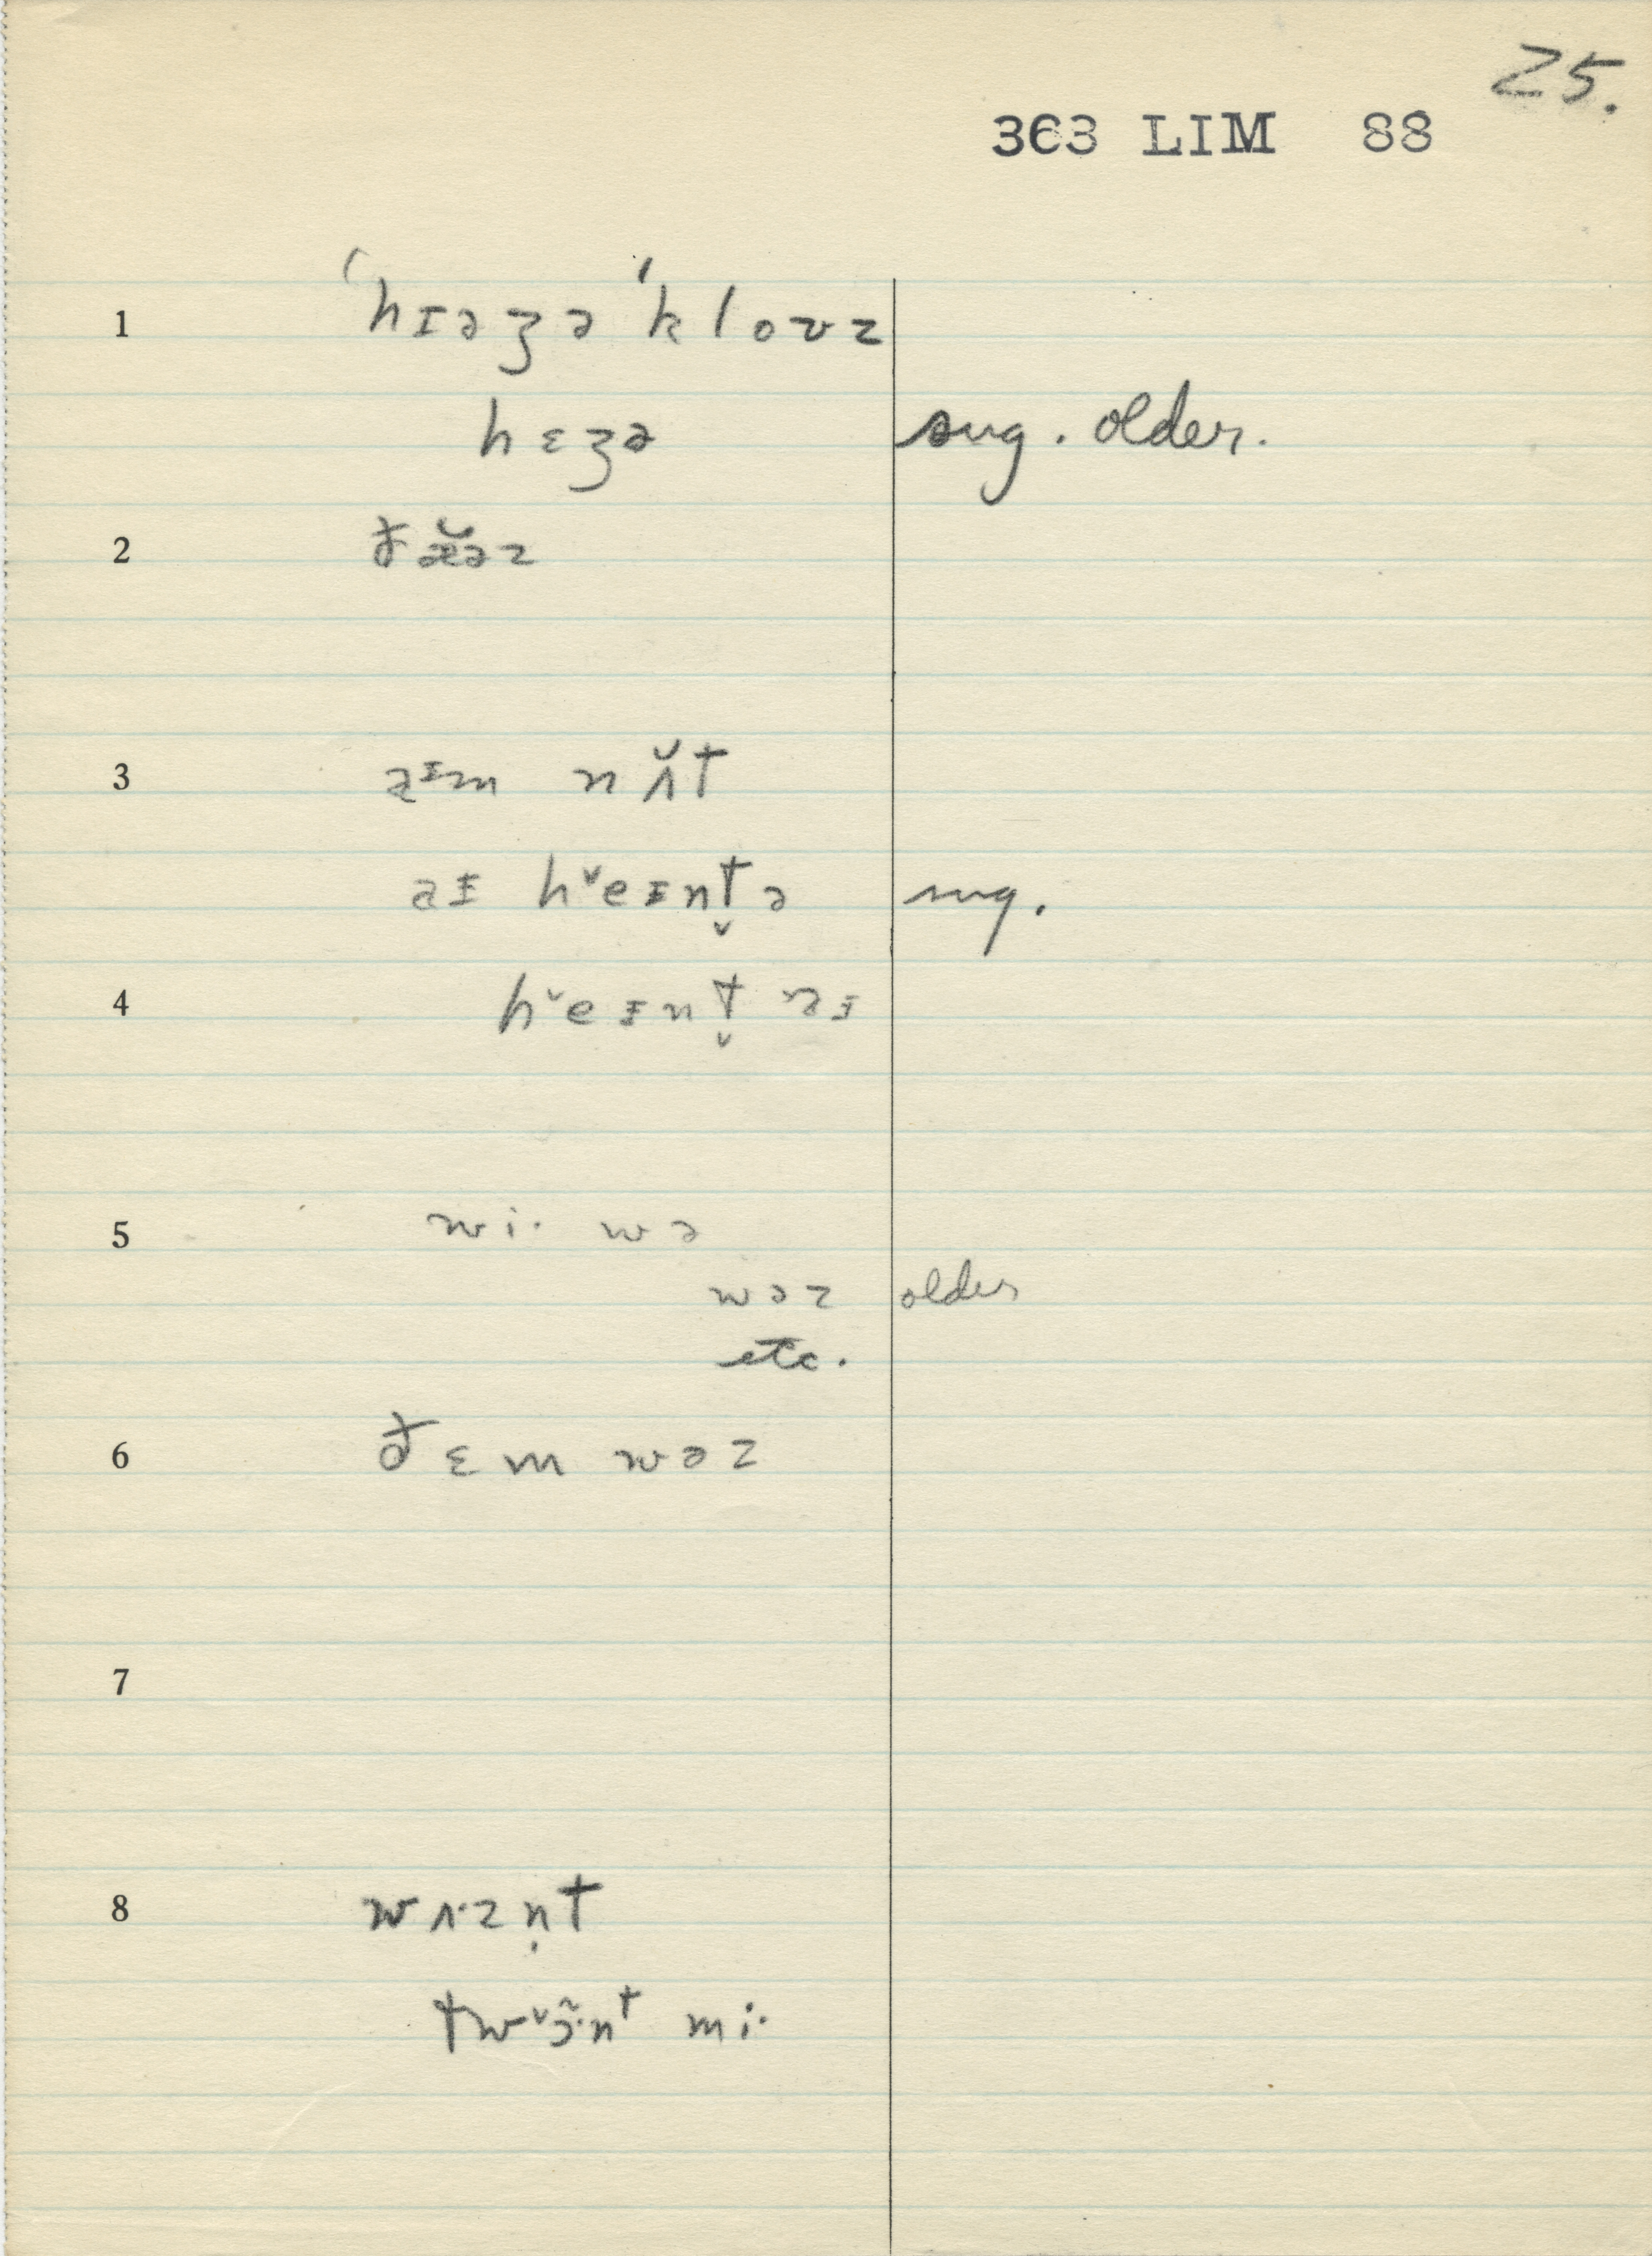 25.
363 LIM 88
1 ˈhɪəʒə ˈklovz
hɛʒə sug. older.
2 ðæ̆əz
3 aɪm nʌ̆t
aɪ hˇeɪnt̬ə sug.
4 hˇeɪnt̬ aɪ
5 wi· wə
wəz older
etc.
6 ðɛm wəz
7
8 wʌ·zn̩t
twˇɔ̃·nt mi·